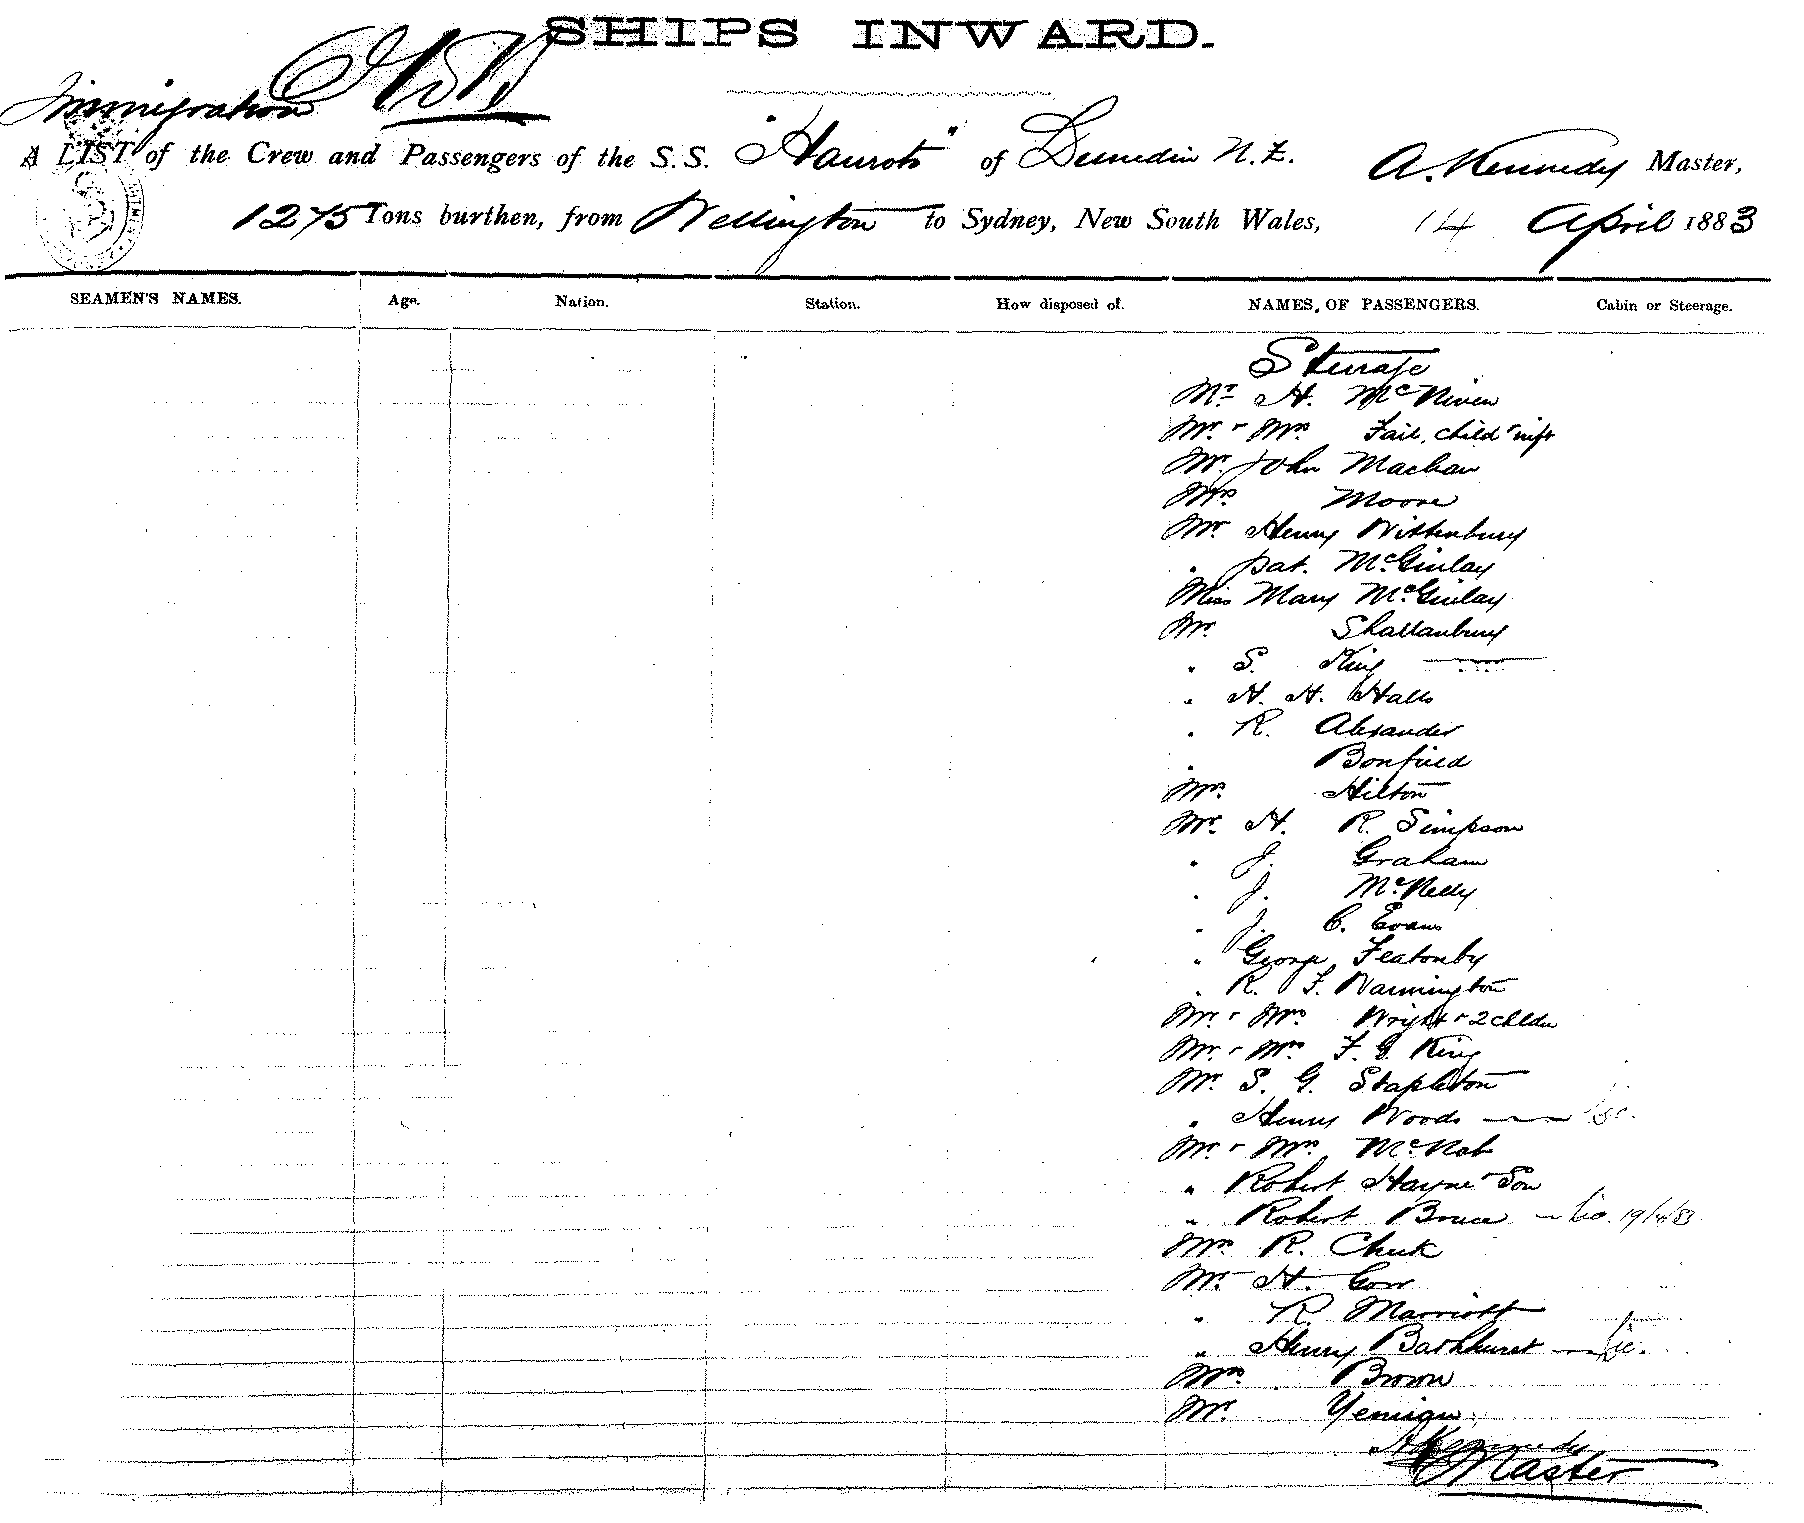 SHIPS INWARD.
Immigration
A LIST of the Crew and Passengers of the S.S. "Hauroto" of Dunedin N.Z. A. Kennedy Master,
1275 Tons burthen, from Wellington to Sydney, New South Wales, 14 April 1883
SEAMEN'S NAMES. Age. Nation. Station. How disposed of. NAMES OF PASSENGERS. Cabin or Steerage.
Steerage
Mr H. McNiven
Mr. & Mrs Fail, child & inft
Mr. John Machan
Mrs Moore
Mr. Henry Wittenbury
" Pat. McGinlay
Miss Mary McGinlay
Mr. Shallanbury
" S. King
" H. H. Halls
" R. Alexander
" Bonfield
Mrs. Hilton
Mr. H. R. Simpson
" J. Graham
" J. McNelly
" J. C. Evans
" George Featonby
" R. F. Warmington
Mr. & Mrs Wright & 2 childn
Mr. & Mrs F. G. King
Mr. S. G. Stapleton
" Henry Woods
Mr. & Mrs. McNab
" Robert Hayne & Son
" Robert Bruce 19/4/83
Mrs R. Cheek
Mr. H. Gow
" R. Marriott
" Henry Bathhurst
Mrs. Brown
Mr. Yemigu
A Kennedy
Master